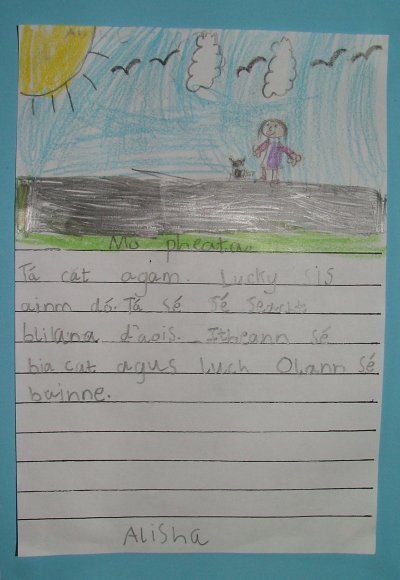 Mo pheata
Tá cat agam. Lucky is
ainm dó. Tá sé sé
bliana d'aois. Itheann sé
bia cat agus luch Olann sé
bainne.
Alisha